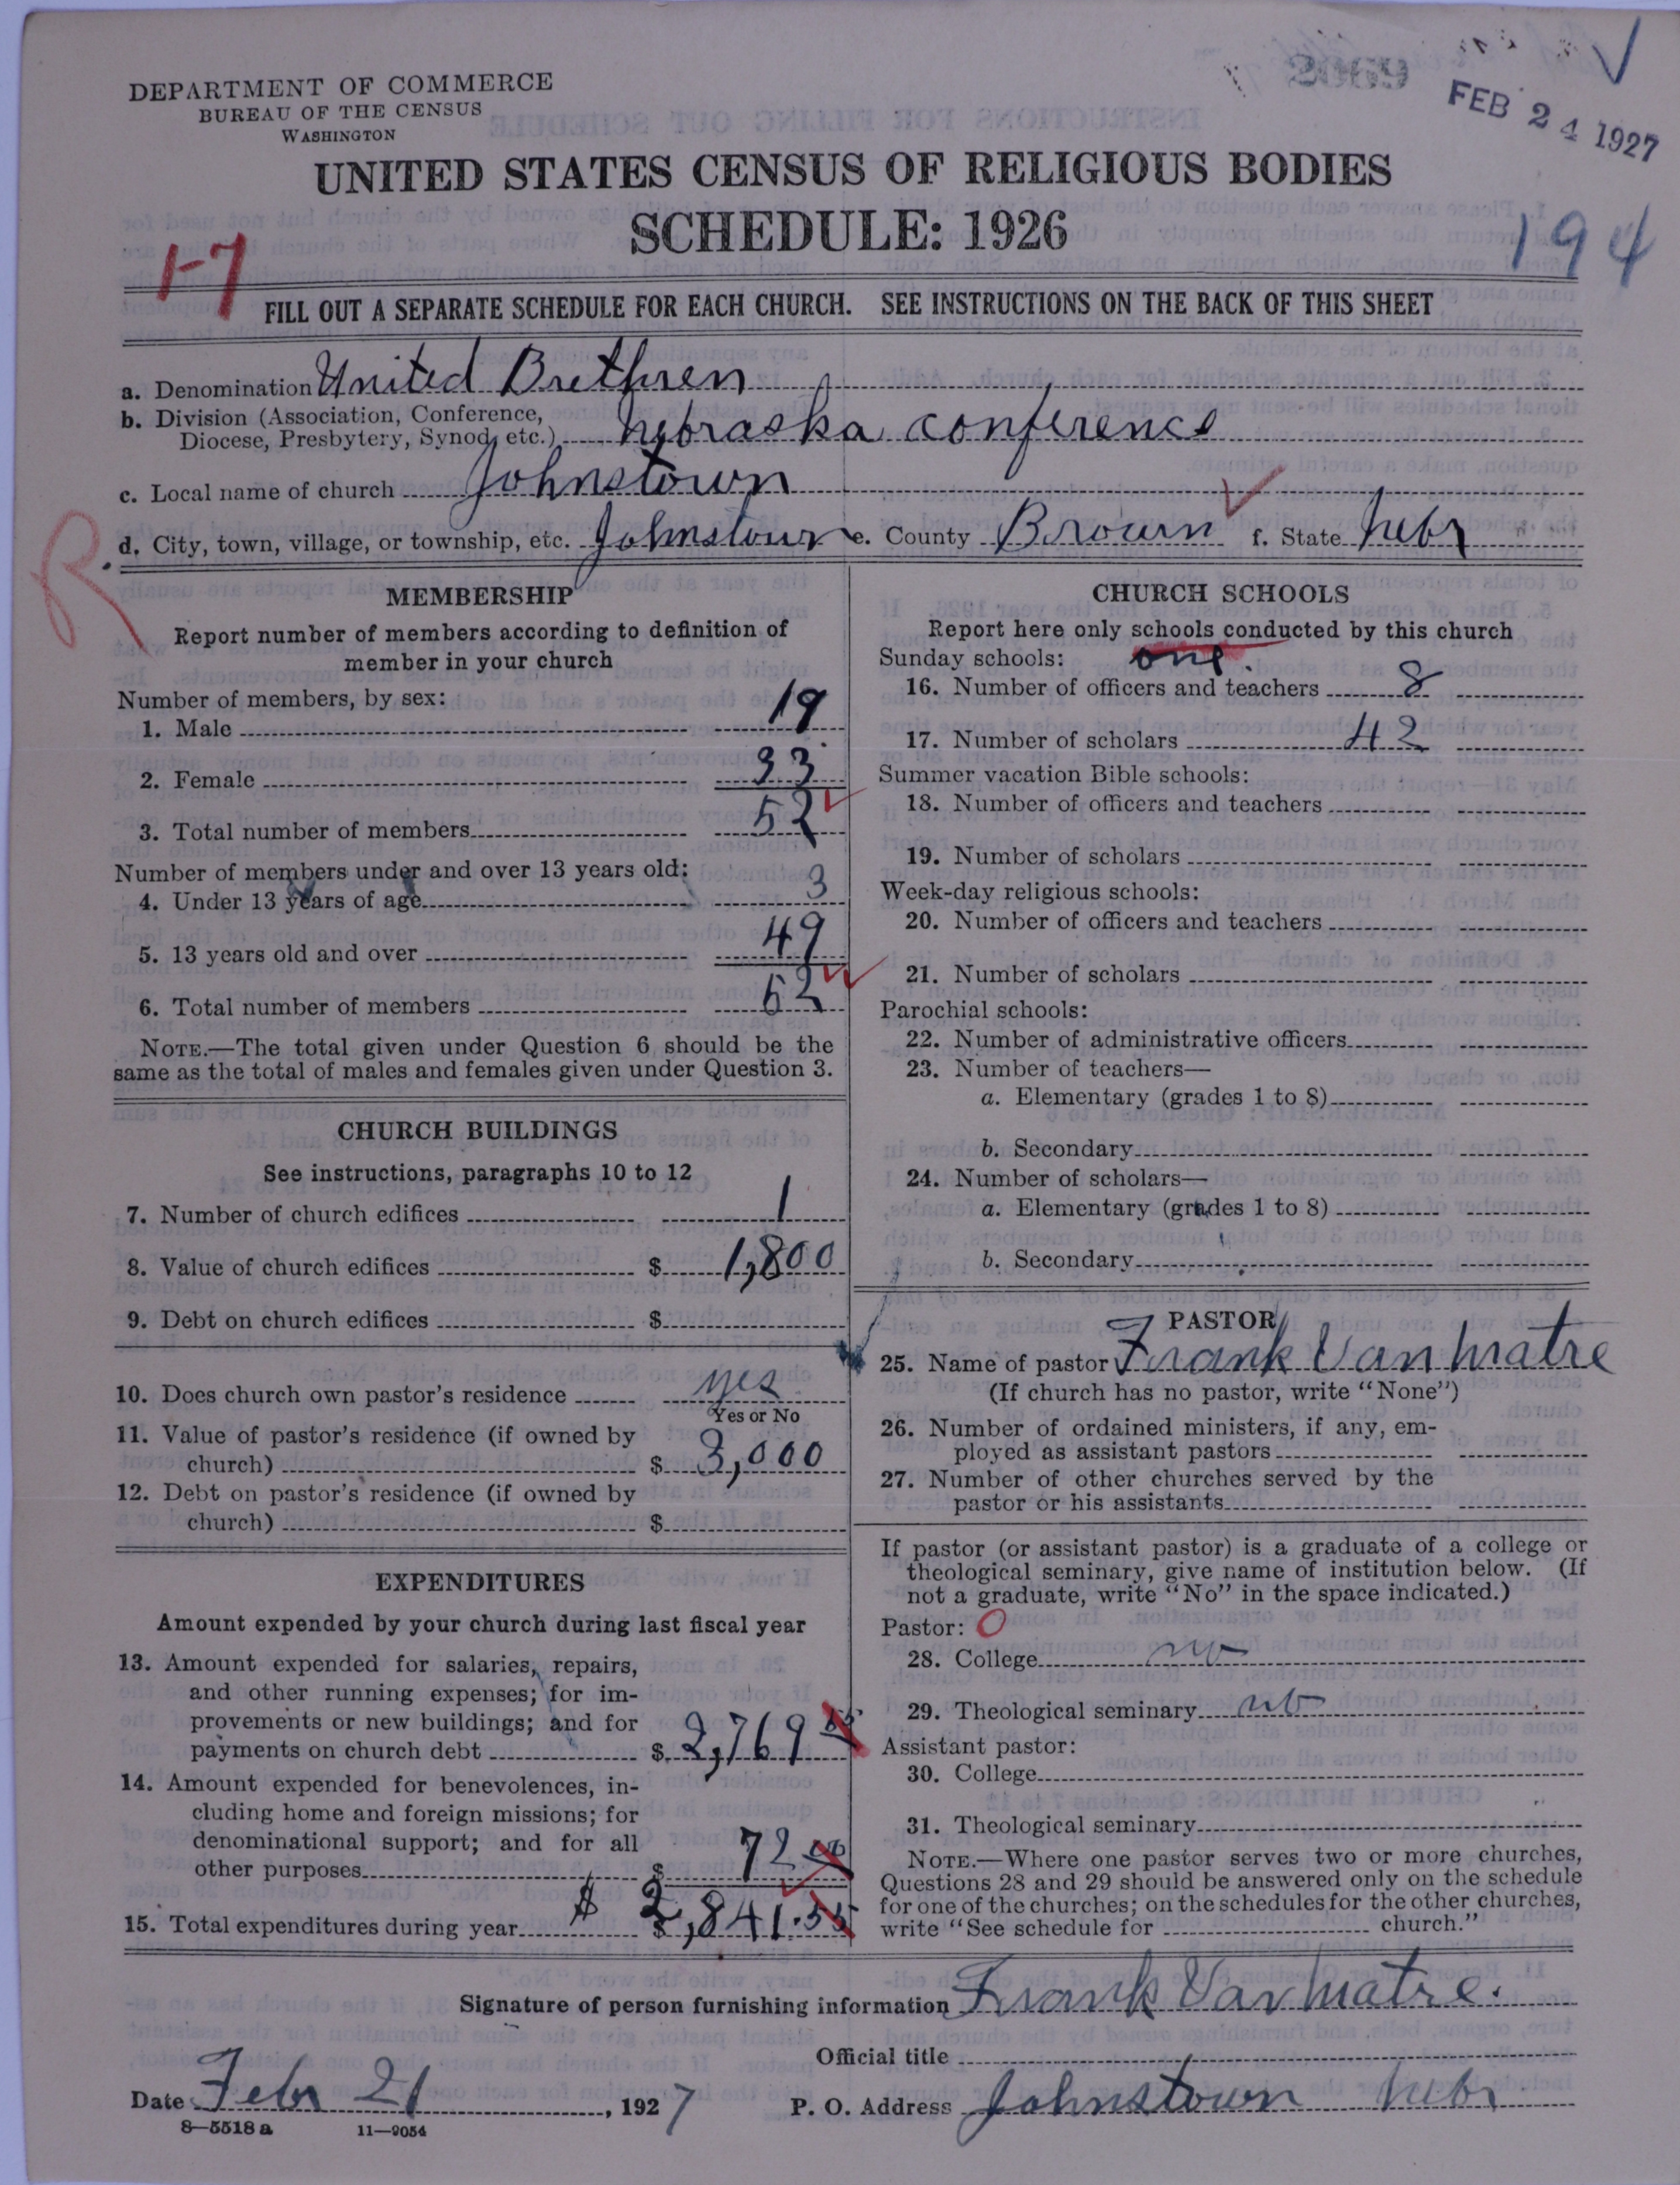 2069
FEB 24 1927
DEPARTMENT OF COMMERCE
BUREAU OF THE CENSUS
WASHINGTON
UNITED STATES CENSUS OF RELIGIOUS BODIES
SCHEDULE: 1926
194
1-7
FILL OUT A SEPARATE SCHEDULE FOR EACH CHURCH. SEE INSTRUCTIONS ON THE BACK OF THIS SHEET
a. Denomination United Brethren
b. Division (Association, Conference,
Diocese, Presbytery, Synod, etc.) Nebraska conference
c. Local name of church Johnstown
d. City, town, village, or township, etc. Johnstown e. County Brown f. State Nebr
R
MEMBERSHIP
Report number of members according to definition of
member in your church
Number of members, by sex:
1. Male 19
2. Female 33
3. Total number of members 52
Number of members under and over 13 years old:
4. Under 13 years of age 3
5. 13 years old and over 49
6. Total number of members 52
NOTE.—The total given under Question 6 should be the
same as the total of males and females given under Question 3.
CHURCH BUILDINGS
See instructions, paragraphs 10 to 12
7. Number of church edifices 1
8. Value of church edifices $ 1,800
9. Debt on church edifices $
10. Does church own pastor's residence yes
Yes or No
11. Value of pastor's residence (if owned by
church) $ 3,000
12. Debt on pastor's residence (if owned by
church) $
EXPENDITURES
Amount expended by your church during last fiscal year
13. Amount expended for salaries, repairs,
and other running expenses; for im-
provements or new buildings; and for
payments on church debt $ 2,769 55
14. Amount expended for benevolences, in-
cluding home and foreign missions; for
denominational support; and for all
other purposes $ 72 00
15. Total expenditures during year $ $ 2,841.55
CHURCH SCHOOLS
Report here only schools conducted by this church
Sunday schools: one.
16. Number of officers and teachers 8
17. Number of scholars 42
Summer vacation Bible schools:
18. Number of officers and teachers
19. Number of scholars
Week-day religious schools:
20. Number of officers and teachers
21. Number of scholars
Parochial schools:
22. Number of administrative officers
23. Number of teachers—
a. Elementary (grades 1 to 8)
b. Secondary
24. Number of scholars—
a. Elementary (grades 1 to 8)
b. Secondary
PASTOR
25. Name of pastor Frank Van Matre
(If church has no pastor, write "None")
26. Number of ordained ministers, if any, em-
ployed as assistant pastors
27. Number of other churches served by the
pastor or his assistants
If pastor (or assistant pastor) is a graduate of a college or
theological seminary, give name of institution below. (If
not a graduate, write "No" in the space indicated.)
Pastor: O
28. College no
29. Theological seminary no
Assistant pastor:
30. College
31. Theological seminary
NOTE.—Where one pastor serves two or more churches,
Questions 28 and 29 should be answered only on the schedule
for one of the churches; on the schedules for the other churches,
write "See schedule for church."
Signature of person furnishing information Frank Van Matre.
Official title
Date Febr 21, 1927 P. O. Address Johnstown Nebr
8—5518a 11—9054